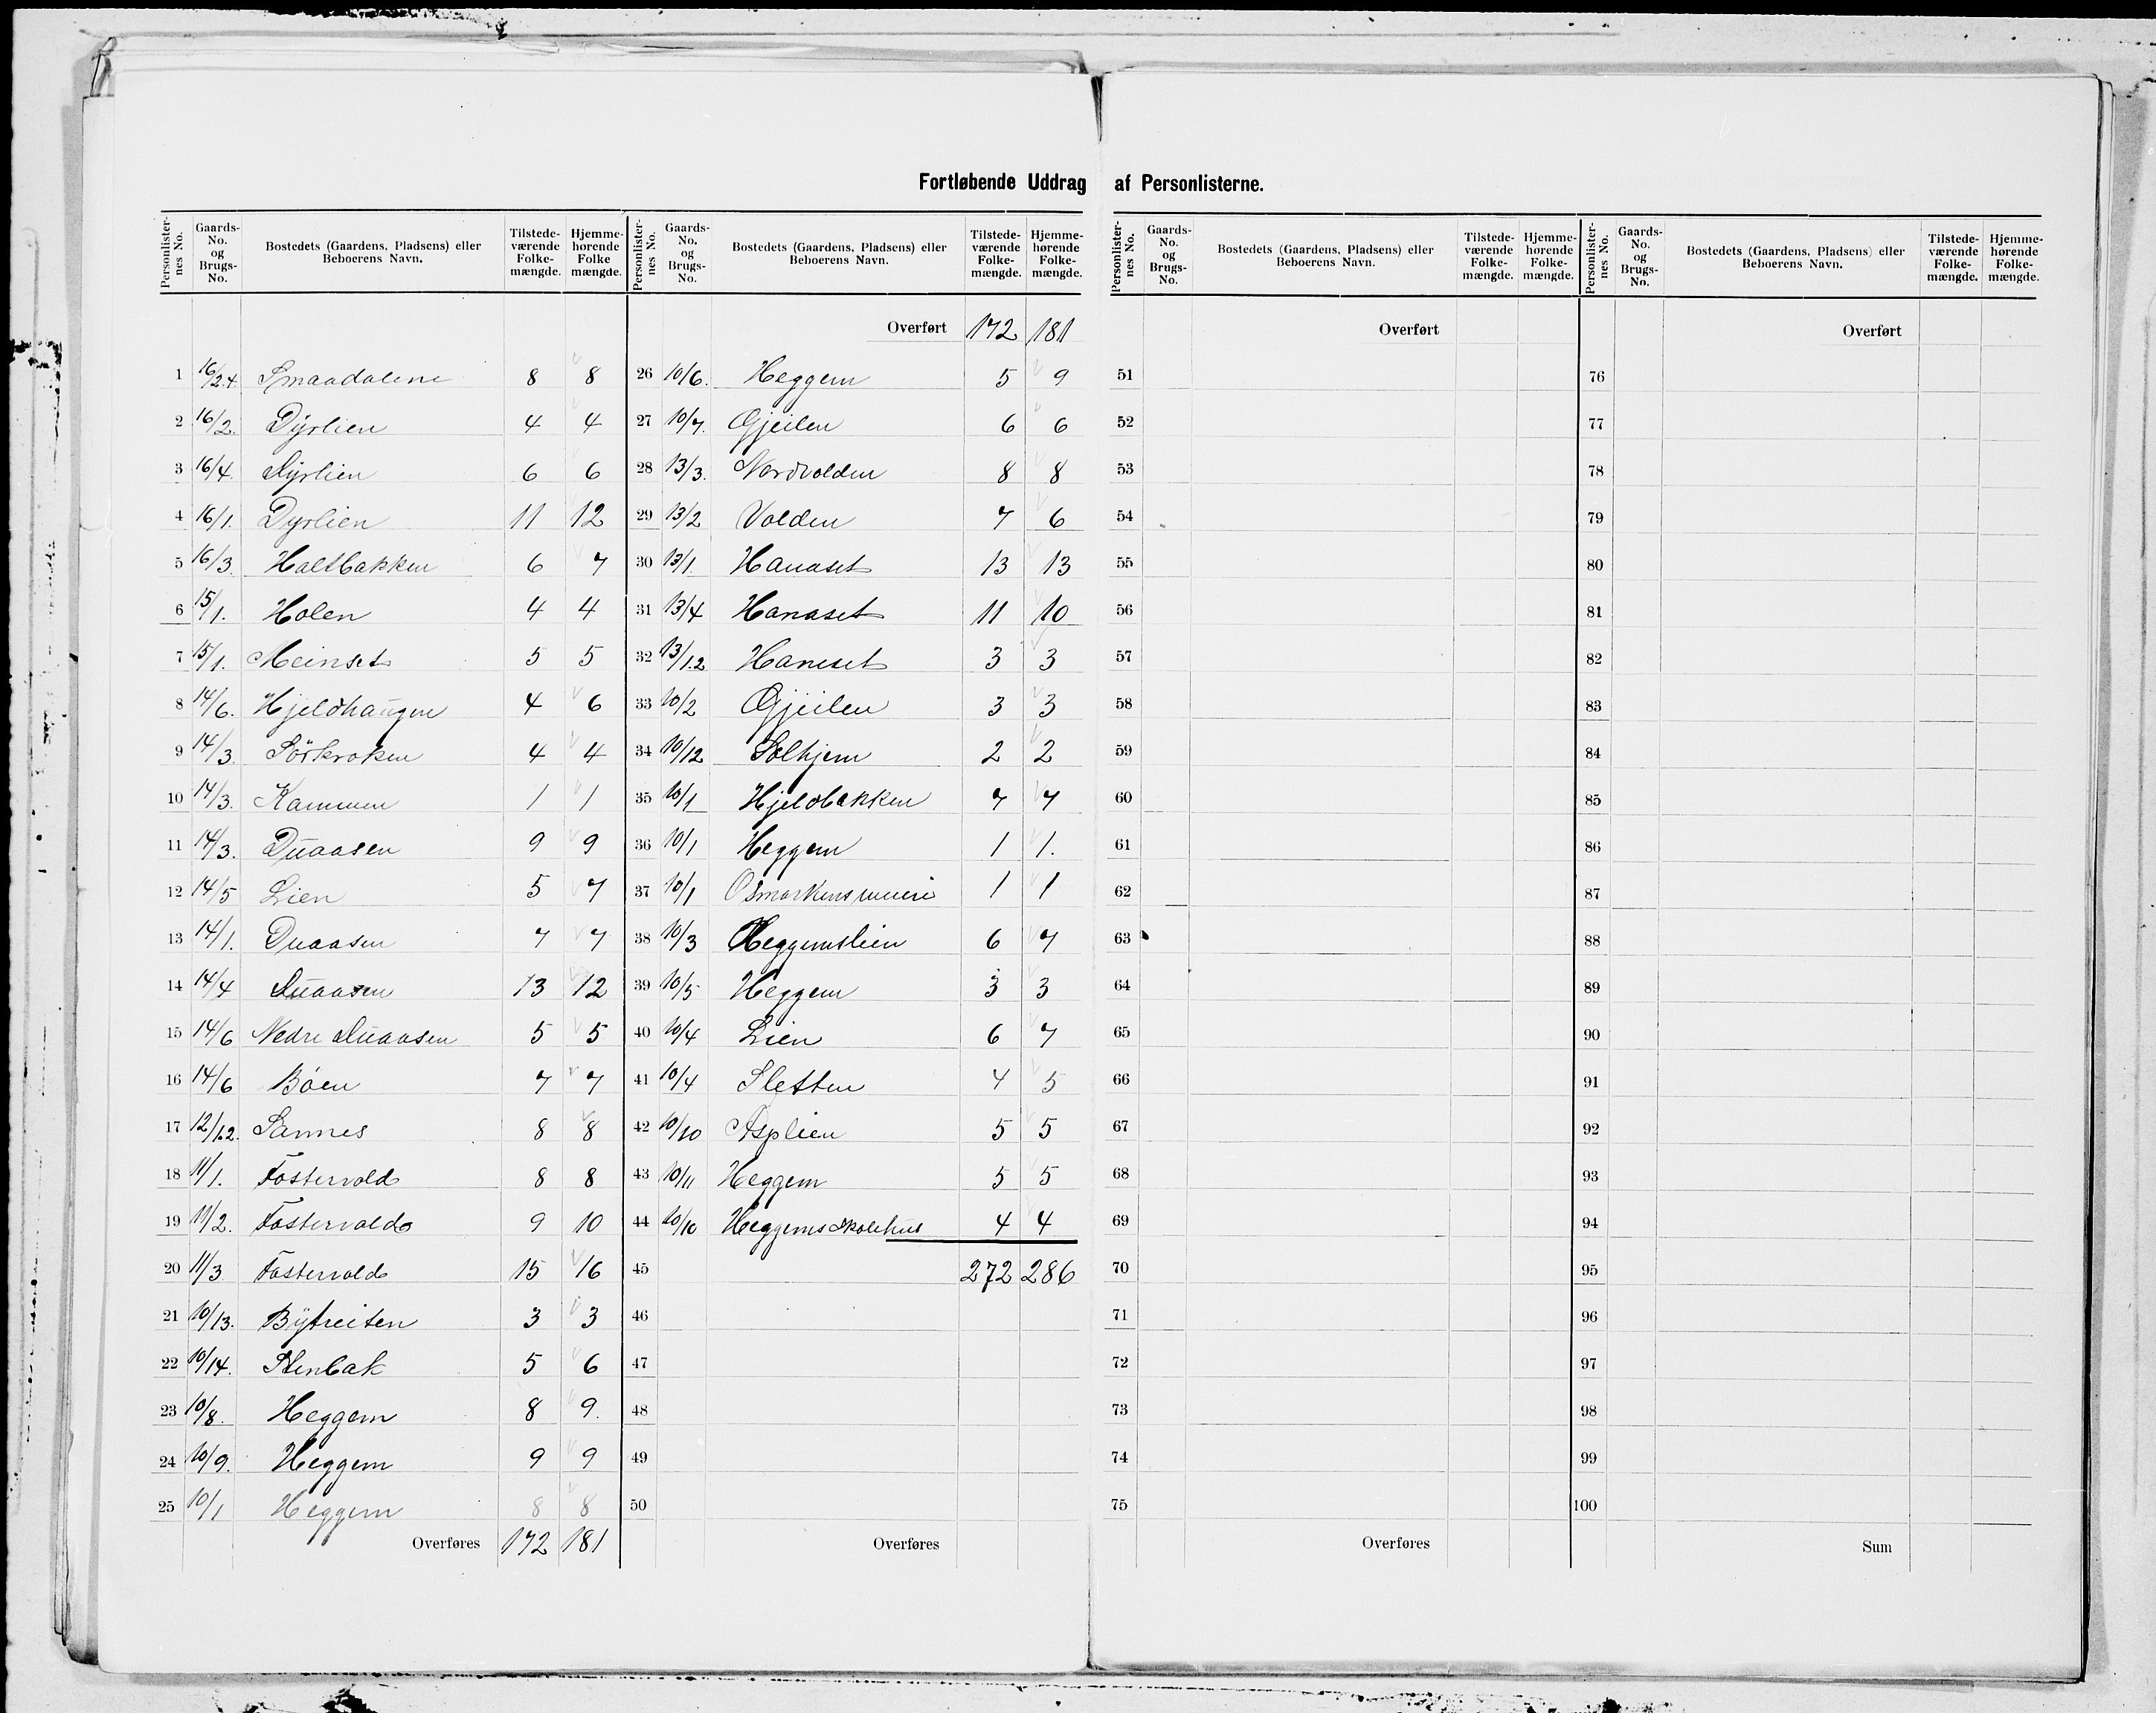 Fortløbende Uddrag af Personlisterne.
Personlister-nes No. Gaards-No. og Brugs-No. Bostedets (Gaardens, Pladsens) eller Beboerens Navn. Tilstede-værende Folke-mængde. Hjemme-hørende Folke mængde.
1 16/2.4. Smaadalene 8 8
2 16/2. Dyrlien 4 4
3 16/4. Dyrlien 6 6
4 16/1. Dyrlien 11 12
5 16/3. Haltbakken 6 7
6 15/1. Holen 4 4
7 15/1. Meinset 5 5
8 14/6. Hjeldhaugen 4 6
9 14/3. Sörkroken 4 4
10 14/3. Kammen 1 1
11 14/3. Duaasen 9 9
12 14/5 Lien 5 7
13 14/1. Duaasen 7 7
14 14/4 Duaasen 13 12
15 14/6 Nedre Duaasen 5 5
16 14/6 Böen 7 7
17 12/1.2. Sannes 8 8
18 11/1. Fostervold 8 8
19 11/2. Fostervold 9 10
20 11/3 Fostervold 15 16
21 10/13. Bytreiten 3 3
22 10/14. Stenbak 5 6
23 10/8. Heggem 8 9.
24 10/9. Heggem 9 9
25 10/1 Heggem 8 8
Overføres 172 181
Personlister-nes No. Gaards-No. og Brugs-No. Bostedets (Gaardens, Pladsens) eller Beboerens Navn. Tilstede-værende Folke-mængde. Hjemme-hørende Folke-mængde.
Overført 172 181
26 10/6. Heggem 5 9
27 10/7. Gjeilen 6 6
28 13/3. Nordvolden 8 8
29 13/2 Volden 7 6
30 13/1. Hanaset 13 13
31 13/4 Hanaset 11 10
32 13/1.2 Haneset 3 3
33 10/2 Gjeilen 3 3
34 10/12 Solhjem 2 2
35 10/1 Hjeldbakken 7 7
36 10/1 Heggem 1 1.
37 10/1 Osmarkens meieri 1 1
38 10/3 Heggemslien 6 7
39 10/5 Heggem 3 3
40 10/4 Lien 6 7
41 10/4 Sletten 4 5
42 10/10 Asplien 5 5
43 10/11 Heggem 5 5
44 10/10 Heggems Skolehus 4 4
45 272 286
46
47
48
49
50
Overføres
Personlister-nes No. Gaards-No. og Brugs-No. Bostedets (Gaardens, Pladsens) eller Beboerens Navn. Tilstede-værende Folke-mængde. Hjemme-hørende Folke-mængde.
Overført
51
52
53
54
55
56
57
58
59
60
61
62
63
64
65
66
67
68
69
70
71
72
73
74
75
Overføres
Personlister-nes No. Gaards-No. og Brugs-No. Bostedets (Gaardens, Pladsens) eller Beboerens Navn. Tilstede-værende Folke-mængde. Hjemme-hørende Folke-mængde.
Overført
76
77
78
79
80
81
82
83
84
85
86
87
88
89
90
91
92
93
94
95
96
97
98
99
100
Sum